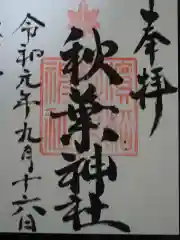 奉拝
秋葉神社
令和元年九月十六日